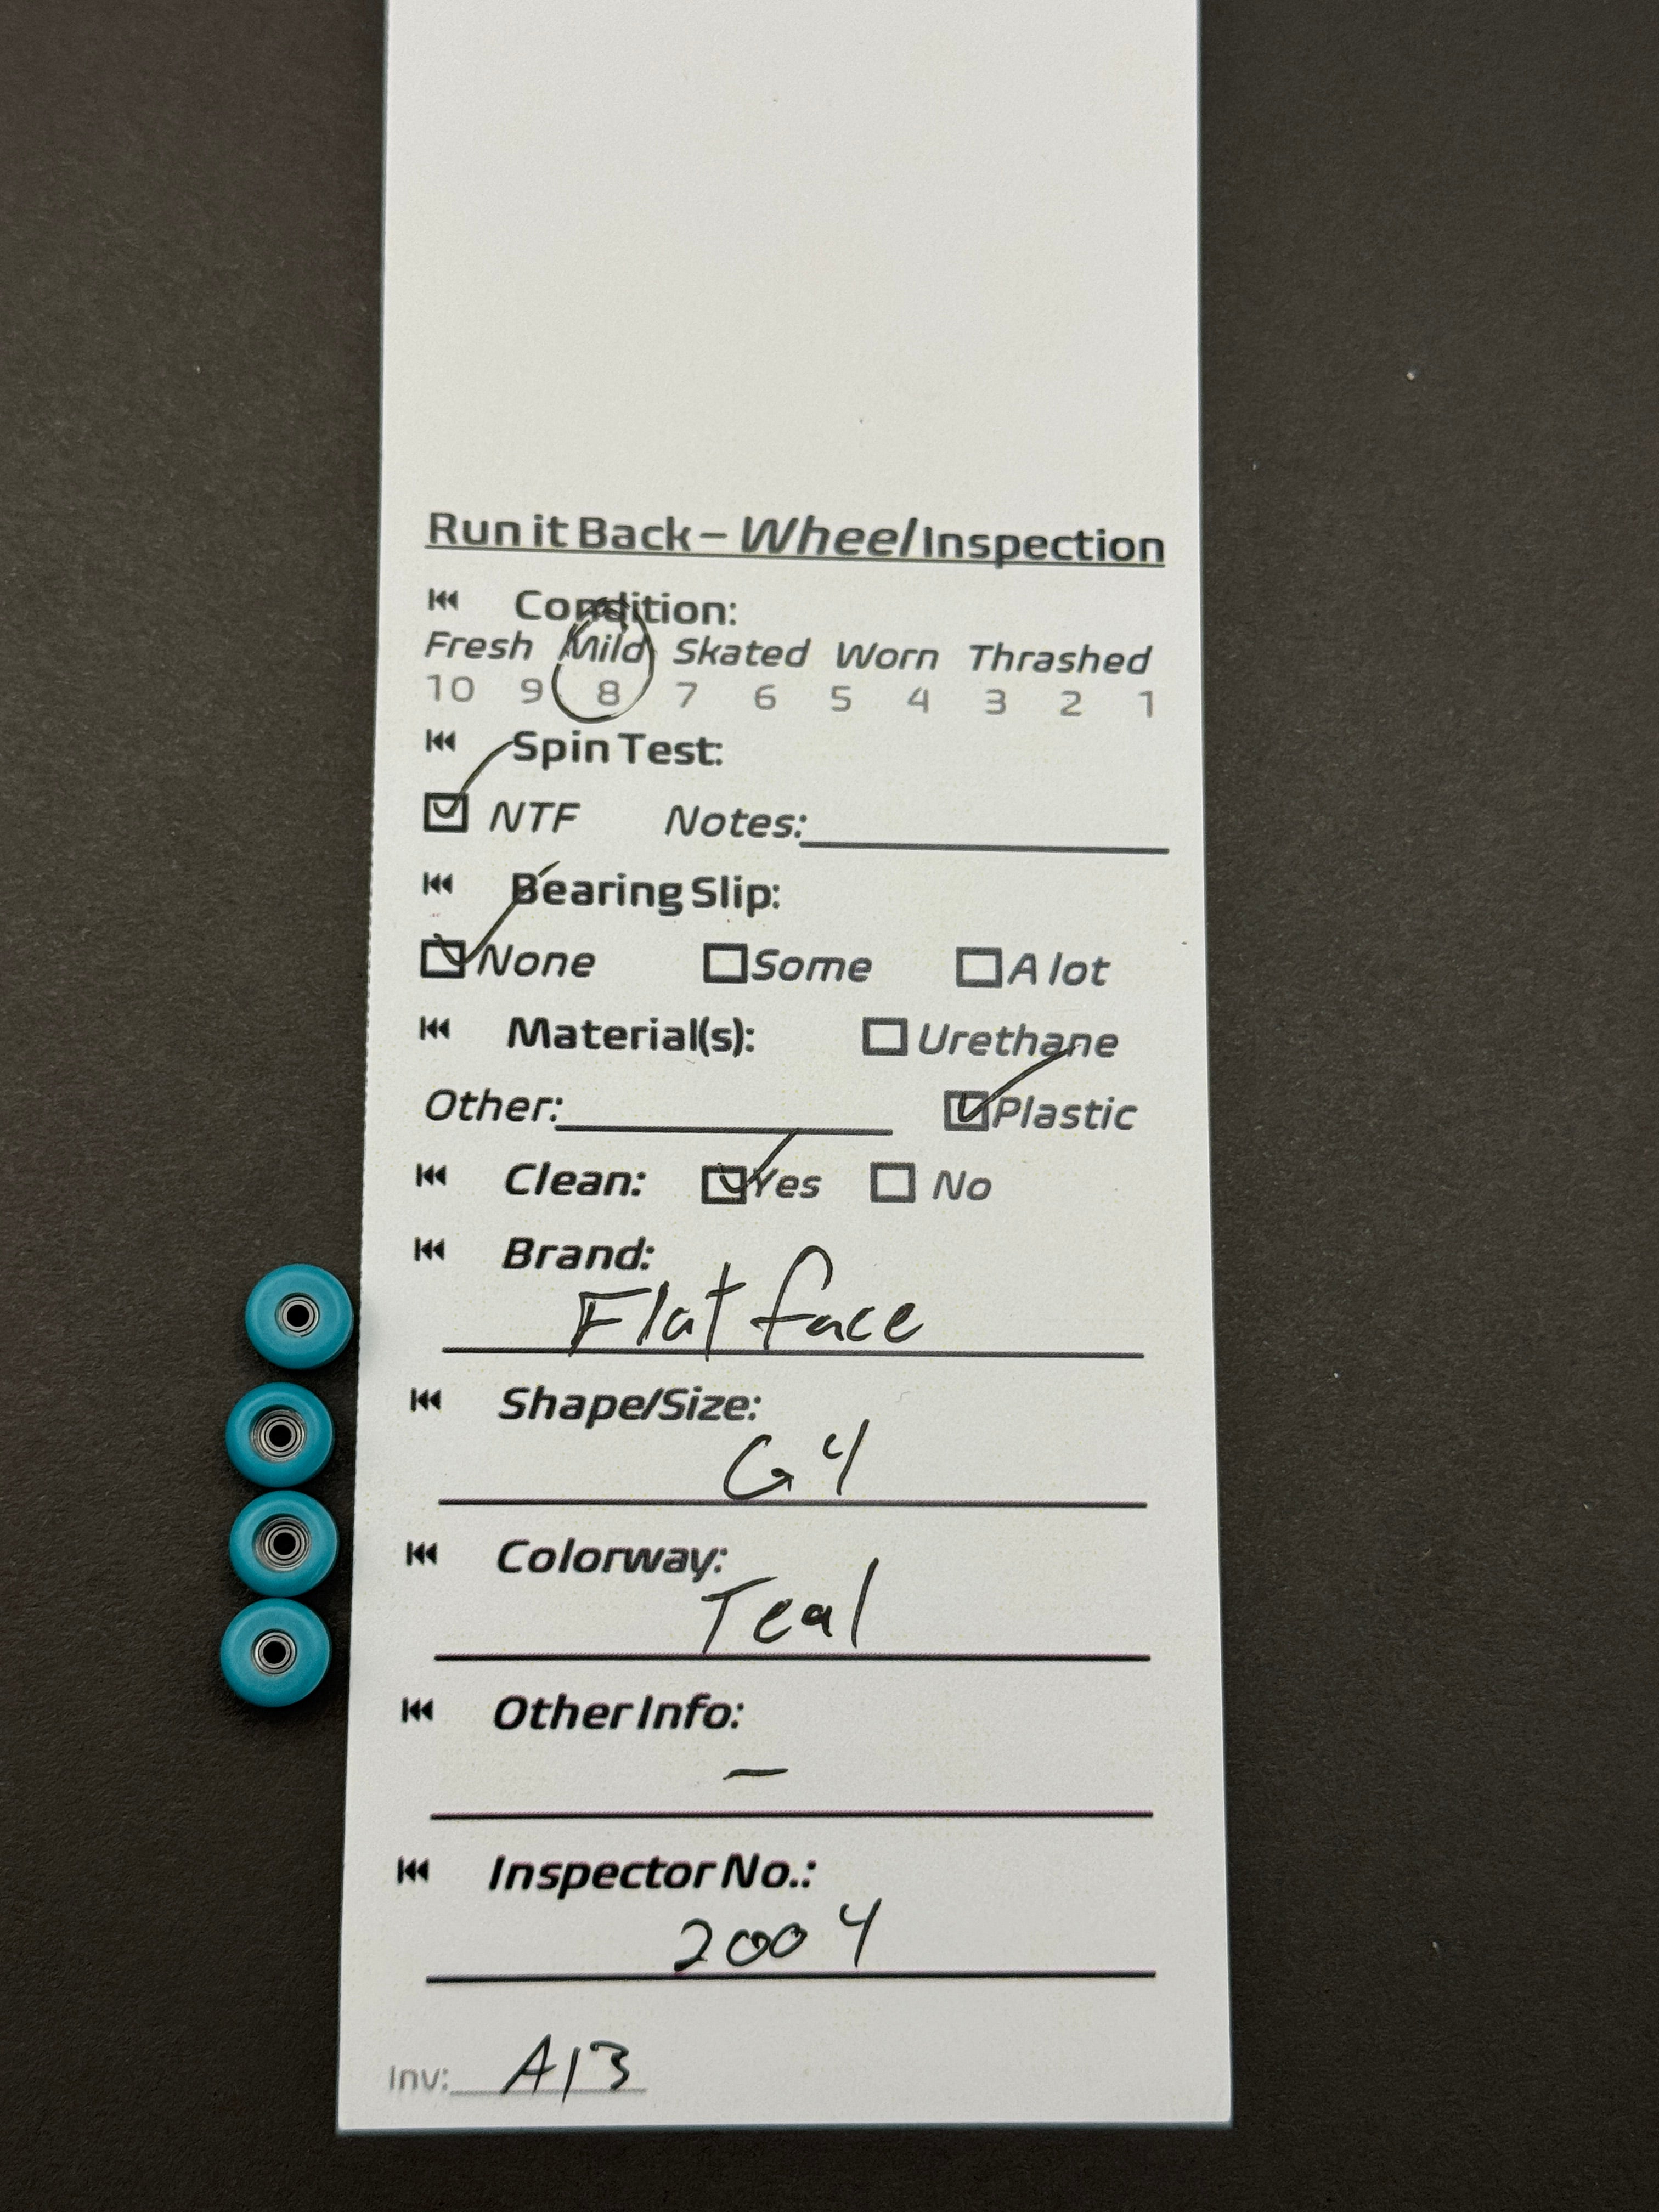 Run it Back – Wheel Inspection
Condition:
Fresh Mild Skated Worn Thrashed
10 9 8 7 6 5 4 3 2 1
Spin Test:
NTF Notes:
Bearing Slip:
None Some A lot
Material(s): Urethane
Other: Plastic
Clean: Yes No
Brand:
Flat face
Shape/Size:
G4
Colorway:
Teal
Other Info:
—
Inspector No.:
2004
Inv: A13